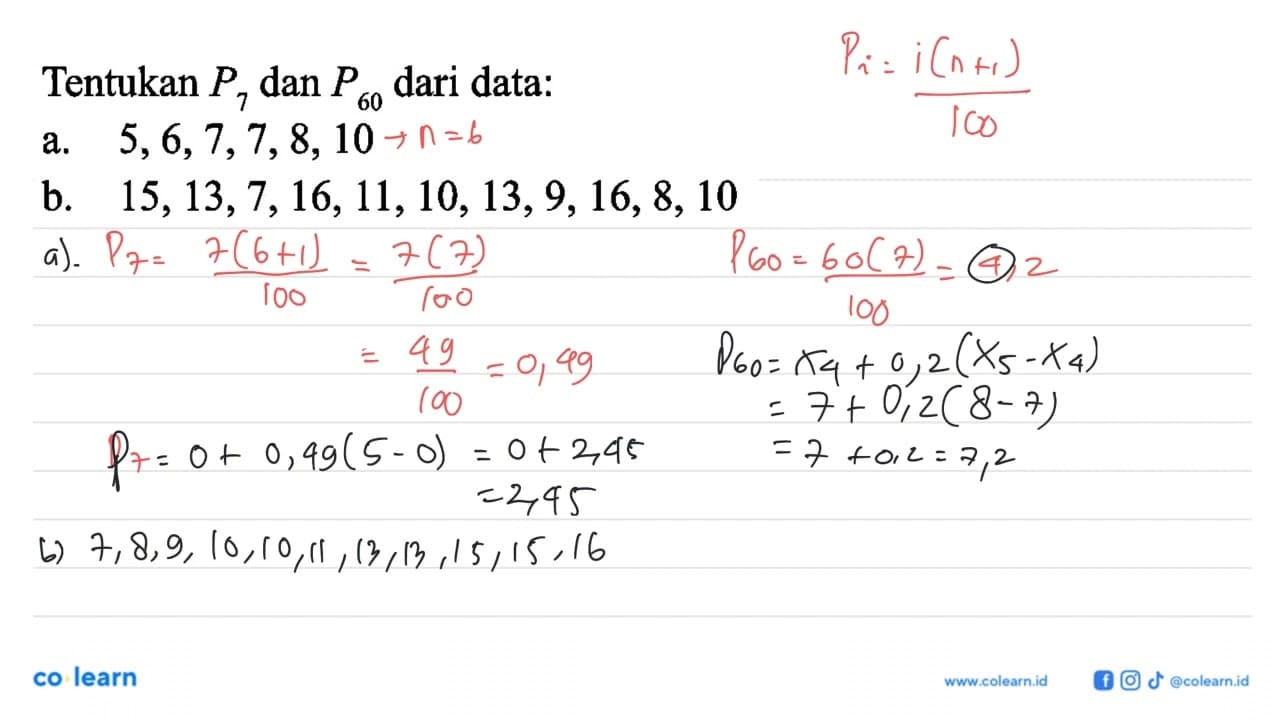 Tentukan P_7 dan P_60 dari data:
P_i = i(n+1)/100
a. 5, 6, 7, 7, 8, 10 → n = 6
b. 15, 13, 7, 16, 11, 10, 13, 9, 16, 8, 10
a). P_7 = 7(6+1)/100 = 7(7)/100
= 49/100 = 0,49
P_7 = 0 + 0,49(5-0) = 0 + 2,45
= 2,45
P_60 = 60(7)/100 = 4,2
P_60 = X_4 + 0,2(X_5 - X_4)
= 7 + 0,2(8-7)
= 7 + 0,2 = 7,2
b) 7, 8, 9, 10, 10, 11, 13, 13, 15, 15, 16
co learn
www.colearn.id
@colearn.id